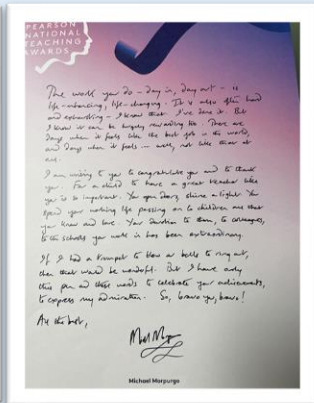 PEARSON
NATIONAL
TEACHING
AWARDS
The work you do – day in, day out – is
life-enhancing, life-changing. It is also often hard
and exhausting – I know that. I've done it. But
I know it can be hugely rewarding too. There are
days when it feels like the best job in the world,
and days when it feels – well, not like that at
all.
I am writing to you to congratulate you and to thank
you. For a child to have a great teacher like
you is so important. You open doors, shine a light. You
spend your working life passing on to children all that
you know and love. Your devotion to them, to colleagues,
to the schools you work in has been extraordinary.
If I had a trumpet to blow or bells to ring out,
then that would be wonderful. But I have only
this pen and these words to celebrate your achievements,
to express my admiration. So, bravo you, bravo!
All the best,
Michael Morpurgo